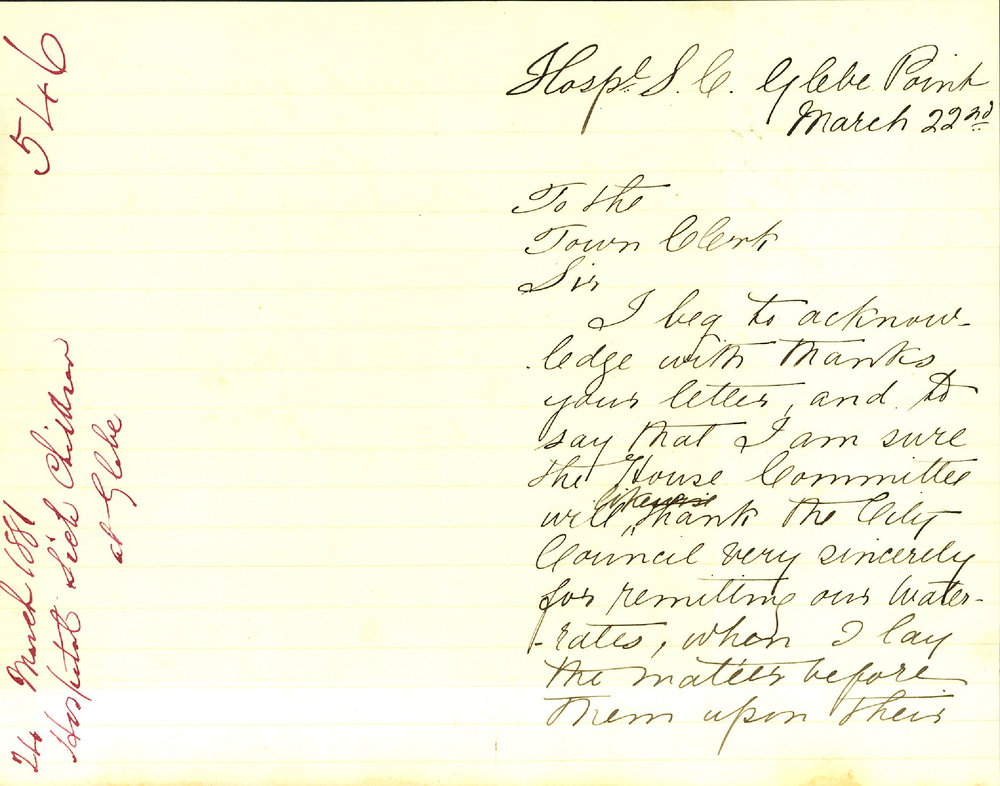 546
24 March 1881
Hospital Sick Children
at Glebe
Hospl. S. C. Glebe Point
March 22nd.
To the
Town Clerk
Sir
I beg to acknow-
ledge with thanks
your letter, and to
say that I am sure
the House Committee
will likewise thank the City
Council very sincerely
for remitting our Water-
-rates, when I lay
the matter before
them upon their